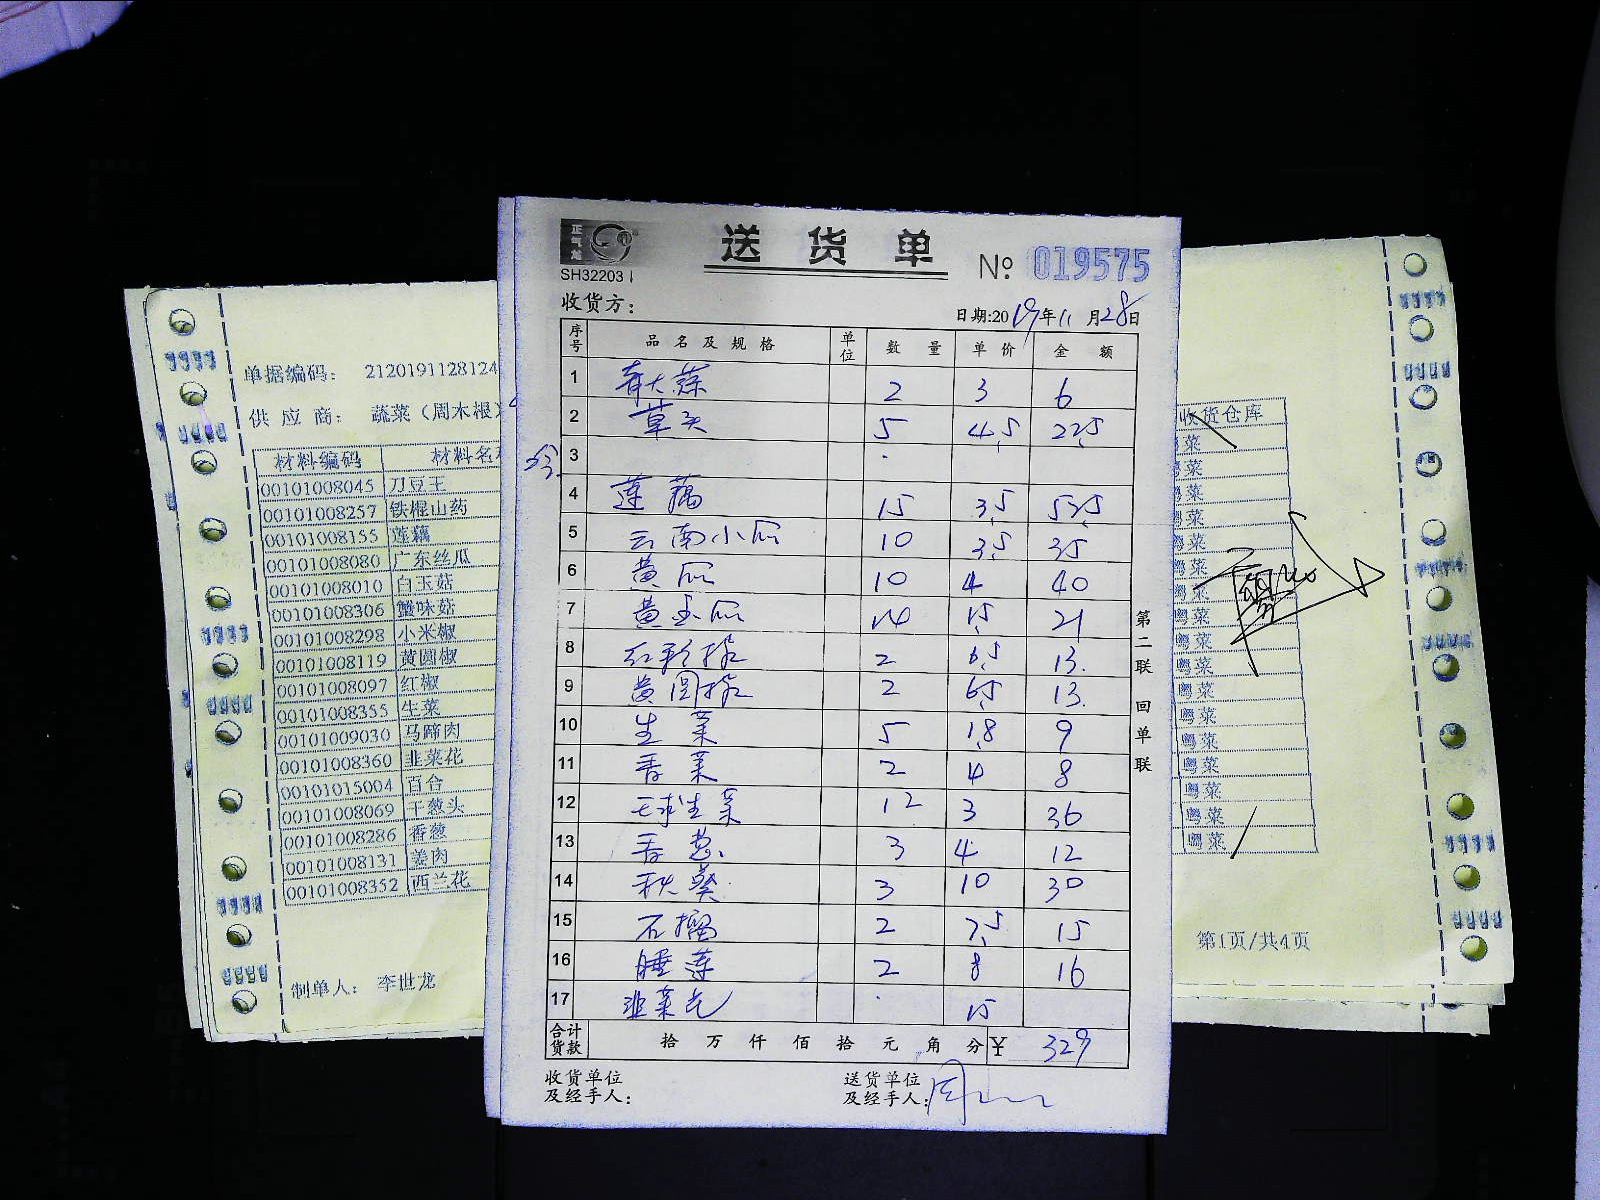 正气龙
SH32203
送货单
№ 019575
收货方：
日期:2019年11月28日
序号 品名及规格 单位 数量 单价 金额
1 青大蒜 2 3 6
2 草头 5 4.5 22.5
3
4 莲藕 15 3.5 52.5
5 云南小瓜 10 3.5 35
6 黄瓜 10 4 40
7 黄金瓜 14 15 21
8 红彩椒 2 6.5 13.
9 黄圆椒 2 6.5 13.
10 生菜 5 1.8 9
11 香菜 2 4 8
12 球生菜 12 3 36
13 香葱 3 4 12
14 秋葵 3 10 30
15 石榴 2 7.5 15
16 睡莲 2 8 16
17 韭菜花 15
合计货款 拾万仟佰拾元角分 ¥ 329
收货单位及经手人：
送货单位及经手人：周
第二联 回单联
单据编码： 2120191128124
供应商： 蔬菜（周木根）
材料编码 材料名
00101008045 刀豆王
00101008257 铁棍山药
00101008155 莲藕
00101008080 广东丝瓜
00101008010 白玉菇
00101008306 蟹味菇
00101008298 小米椒
00101008119 黄圆椒
00101008097 红椒
00101008355 生菜
00101009030 马蹄肉
00101008360 韭菜花
00101015004 百合
00101008069 干葱头
00101008286 香葱
00101008131 姜肉
00101008352 西兰花
制单人： 李世龙
收货仓库
粤菜
粤菜
粤菜
粤菜
粤菜
粤菜
粤菜
粤菜
粤菜
粤菜
粤菜
粤菜
粤菜
粤菜
粤菜
粤菜
粤菜
第1页/共4页